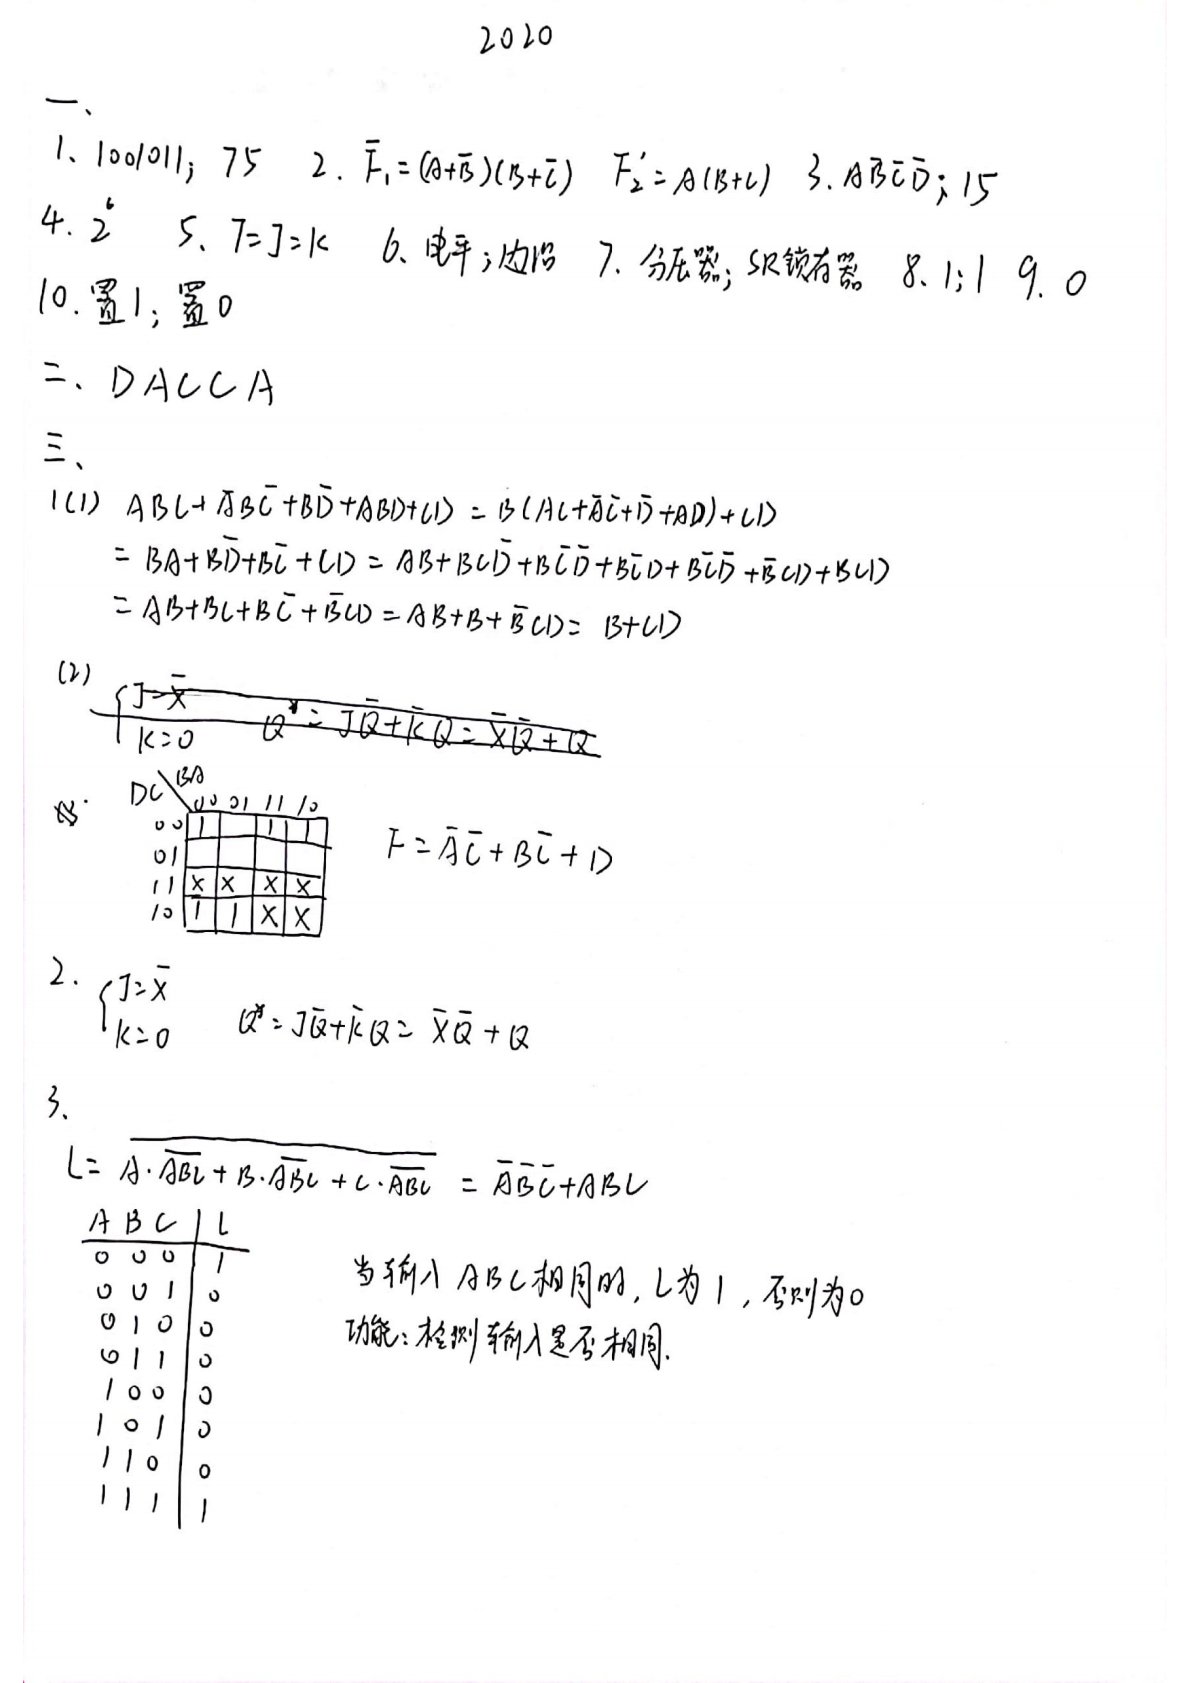 2020
一、
1、1001011; 75 2. F̅₁=(A+B̅)(B+C̅) F₂'=A(B+C) 3. AB̅C̅D̅; 15
4. 2⁶ 5、T=J=K 6、电平;边沿 7. 分压器; SR锁存器 8、1;1 9. 0
10. 置1; 置0
二、DACCA
三、
1(1) ABC+A̅BC̅+BD̅+ABD+CD = B(AC+A̅C̅+D̅+AD)+CD
= BA+BD̅+BC̅+CD = AB+BCD̅+BC̅D̅+BC̅D+BC̅D̅+B̅CD+BCD
= AB+BC+BC̅+B̅CD = AB+B+B̅CD = B+CD
(2) J=X̅
K=0 Q*=JQ̅+K̅Q=X̅Q̅+Q
DC\BA 00 01 11 10
00 1 1 1
01
11 X X X X
10 1 1 X X
F=A̅C̅+BC̅+D
2. J=X̅
K=0 Q*=JQ̅+K̅Q= X̅Q̅+Q
3、
L= \overline{A·\overline{ABC}+B·\overline{ABC}+C·\overline{ABC}} = A̅B̅C̅+ABC
A B C | L
0 0 0 1
0 0 1 0
0 1 0 0
0 1 1 0
1 0 0 0
1 0 1 0
1 1 0 0
1 1 1 1
当输入ABC相同时, L为1, 否则为0
功能: 检测输入是否相同.